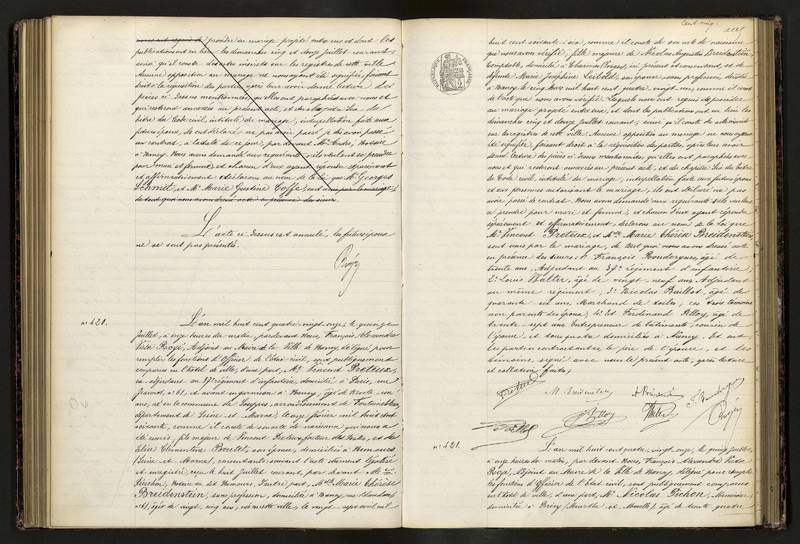 nous ont requis de procéder au mariage projeté entre eux et dont les
publications ont eu lieu les dimanches cinq et douze Juillet courant,
ainsi qu'il conste des actes inscrits sur les registres de cette ville
Aucune opposition au mariage ne nous ayant été signifiée, faisant
droit à la réquisition des parties, après leur avoir donné lecture des
pièces ci-dessus mentionnées,
qui resteront annexées au présent acte, et du chapitre six du
titre du Code civil, intitulé du mariage, interpellation faite aux
futurs époux, ils ont déclaré ne pas avoir passé
un contrat, à la date de ce jour, par devant Me Notaire
à Nancy. Nous avons demandé aux requérants s'ils veulent se prendre
pour mari et femme; et chacun d'eux ayant répondu séparément
et affirmativement, déclarons au nom de la loi que Mr Georges
Schmit, et Mlle Marie Justine Toffe, sont unis par le mariage,
de tout quoi nous avons dressé acte en présence des sieurs
L'acte ci-dessus est annulé, les futurs époux
ne se sont pas présentés.
n° 420.
L'an mil huit cent quatre-vingt-onze, le quinze
Juillet, à onze heures du matin, par devant Nous, François Alexandre
Rozé, Adjoint au Maire de la Ville de Nancy, délégué pour
remplir les fonctions d'Officier de l'état civil, sont publiquement
comparus en l'hôtel de ville, d'une part, Mr Vincent Proteux,
ex adjudant au régiment d'infanterie, domicilié à Paris, rue
n° 61, et avant en garnison à Nancy, âgé de trente-un
ans, né en la commune de Souppes, arrondissement de Fontainebleau,
département de Seine et Marne, le onze février mil huit cent
soixante, comme il conste de son acte de naissance qui nous a
été remis, fils majeur de Vincent Proteux, facteur des Postes, et de
Elise Clémentine son épouse, domiciliés à Nemours
(Seine et Marne), consentants suivant l'acte dûment légalisé
et enregistré, reçu le huit Juillet courant, par devant Me
Notaire au dit Nemours, D'autre part, Mlle Marie Thérèse
Breidenstein, sans profession, domiciliée à Nancy, rue
n° 61, âgée de vingt-cinq ans, née en cette ville, le vingt-sept avril mil
Cent cinq.
huit cent soixante-six, comme il conste de son acte de naissance
que nous avons vérifié, fille majeure de Nicolas Augustin Breidenstein
Comptable, domicilié à ci présent et consentant, et de
défunte Marie Joséphine son épouse, sans profession, décédée
à Nancy, le cinq Avril mil huit cent quatre-vingt-un, comme il conste
de l'acte que nous avons vérifié. Lesquels nous ont requis de procéder
au mariage projeté entre eux, et dont les publications ont eu lieu les
dimanches cinq et douze Juillet courant; ainsi qu'il conste des actes inscrits
sur les registres de cette ville. Aucune opposition au mariage ne nous ayant
été signifiée, faisant droit à la réquisition des parties, après leur avoir
donné lecture des pièces ci-dessus mentionnées, qu'elles ont paraphées avec
nous et qui resteront annexées au présent acte, et du chapitre six du titre
du Code civil, intitulé du mariage, interpellation faite aux futurs époux
et aux personnes autorisant le mariage, ils ont déclaré ne pas
avoir passé de contrat. Nous avons demandé aux requérants s'ils veulent
se prendre pour mari et femme; et chacun d'eux ayant répondu
séparément et affirmativement, déclarons au nom de la loi que
Mr Vincent Proteux, et Mlle Marie Thérèse Breidenstein,
sont unis par le mariage, de tout quoi nous avons dressé acte
en présence des sieurs: 1° François âgé de
trente ans, Adjudant au 79e régiment d'infanterie,
2° Louis Walter, âgé de vingt-neuf ans, Adjudant
au même régiment, 3° Nicolas âgé de
quarante-six ans, Marchand de toiles, ces trois témoins
non parents des époux; 4° et Ferdinand Pilloy, âgé de
trente-sept ans, Entrepreneur de bâtiments, cousin de
l'épouse, et tous quatre domiciliés à Nancy. Et ont
les parties contractantes, le père de l'épouse, et les
témoins, signé avec nous le présent acte, après lecture
et collation faites,
Proteux
M. Breidenstein
Pilloy
Walter
n° 421.
L'an mil huit cent quatre-vingt-onze, le quinze Juillet,
à onze heures du matin, par devant Nous, François Alexandre
Rozé, Adjoint au Maire de la Ville de Nancy, délégué pour remplir
les fonctions d'Officier de l'état civil, sont publiquement comparus
en l'hôtel de ville, d'une part, Mr Nicolas Pichon, Menuisier,
domicilié à Briey (Meurthe et Moselle), âgé de trente-quatre